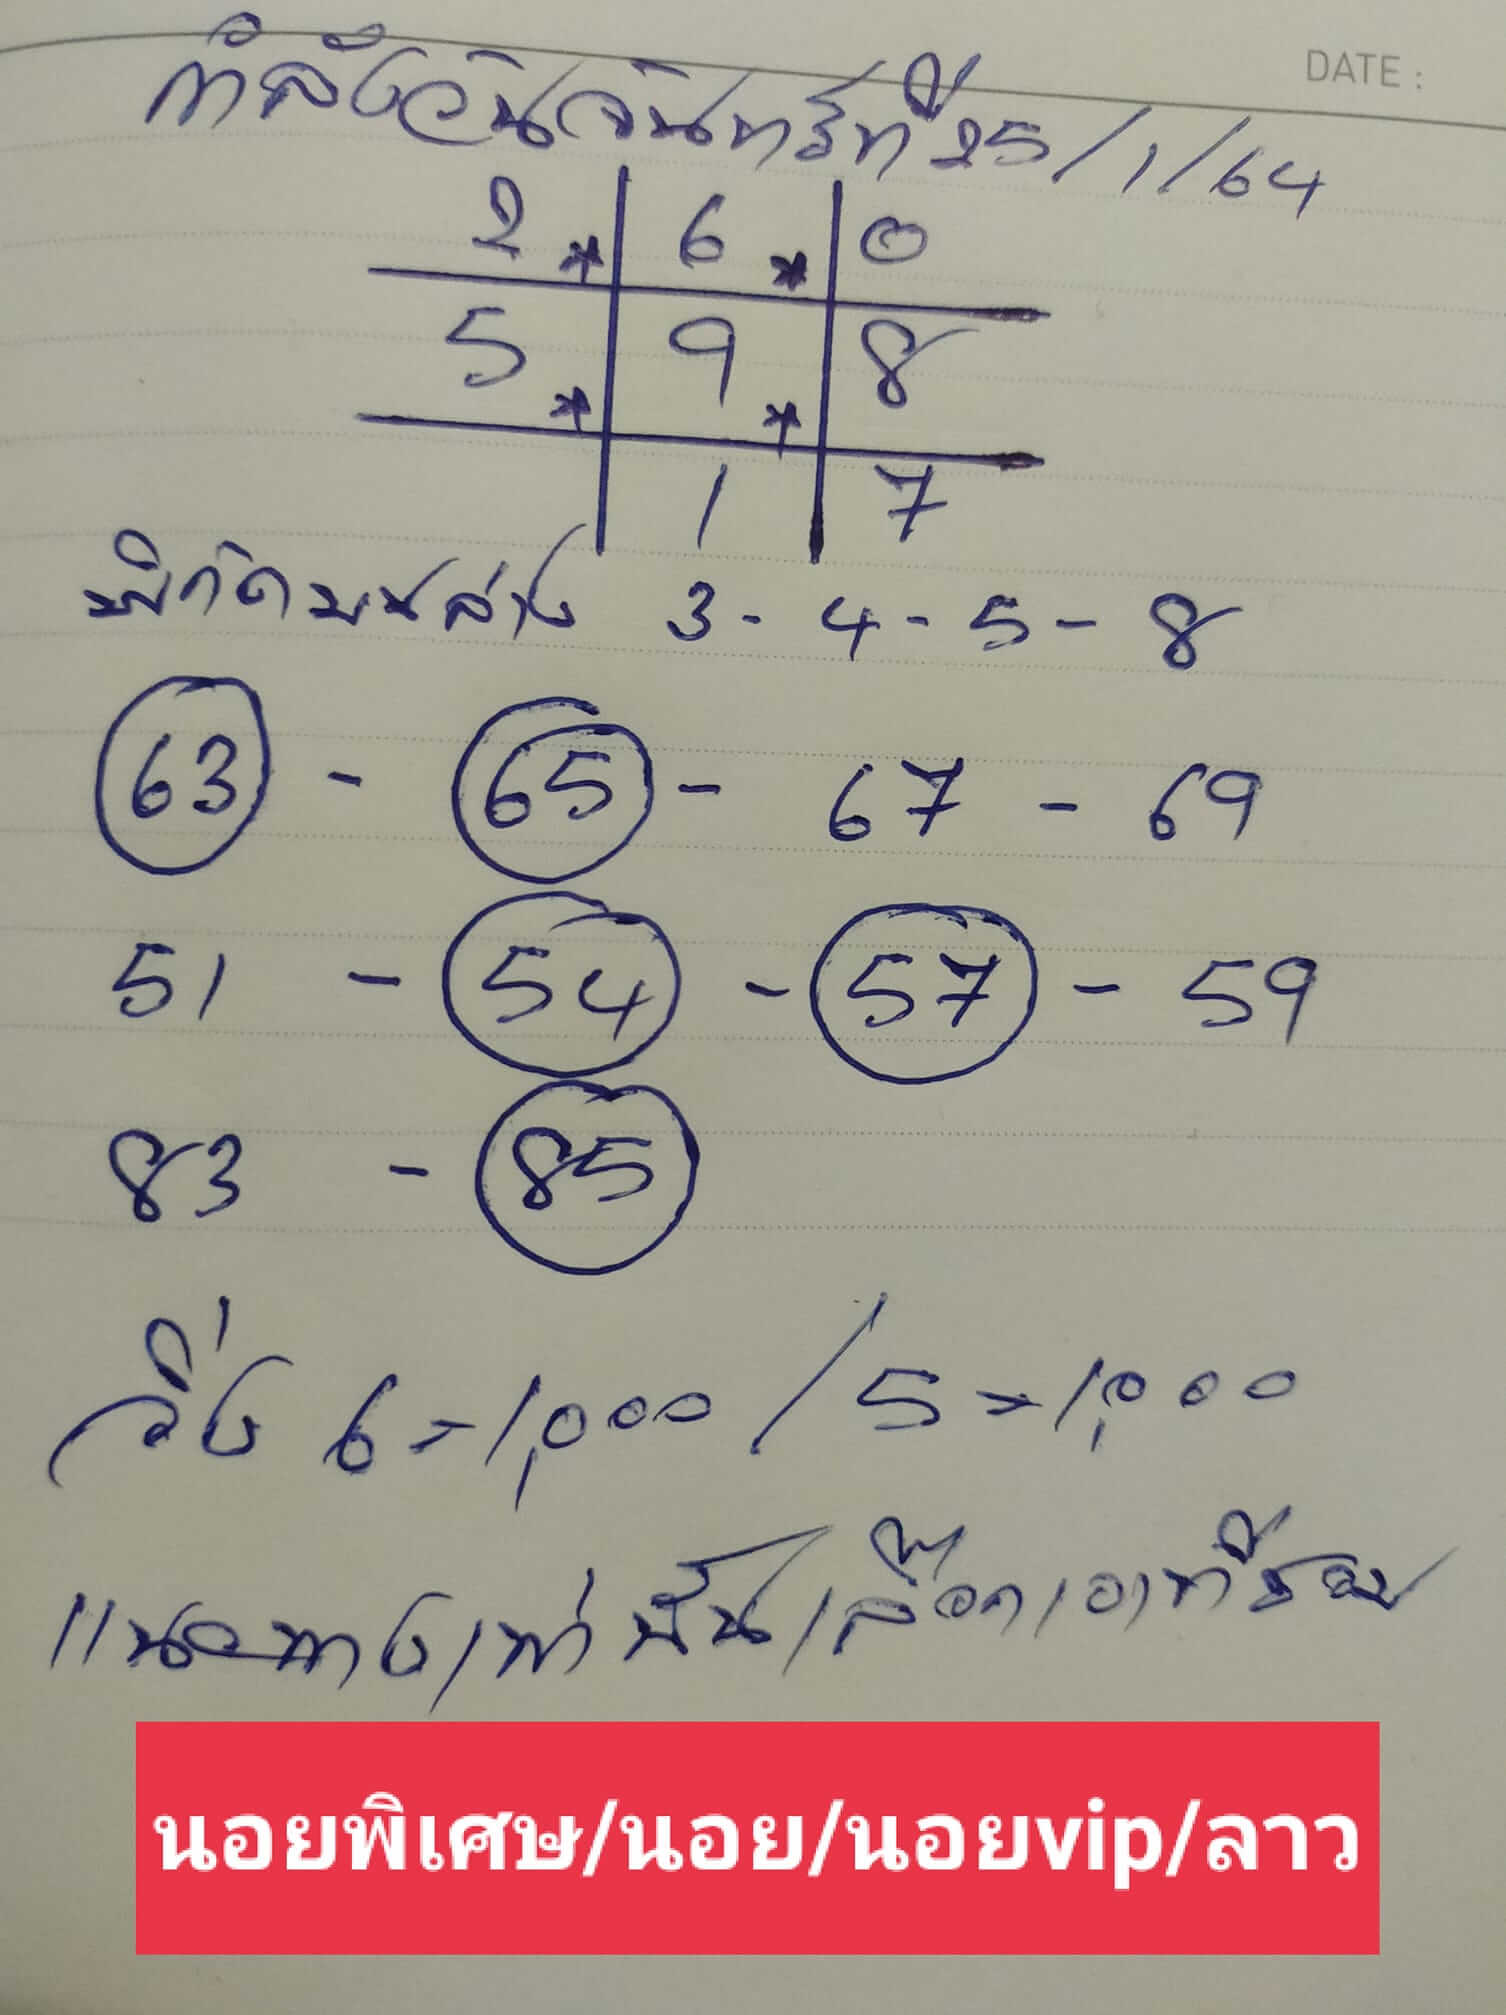 DATE :
กำลังวันจันทร์ที่ 25/1/64
2 * 6 * 0
5 * 9 * 8
1 7
พิกัดบนล่าง 3-4-5-8
63 - 65 - 67 - 69
51 - 54 - 57 - 59
83 - 85
วิ่ง 6=1,000/5=1,000
แนวทางเท่านั้นเลือกเอาที่ชอบ
นอยพิเศษ/นอย/นอยvip/ลาว